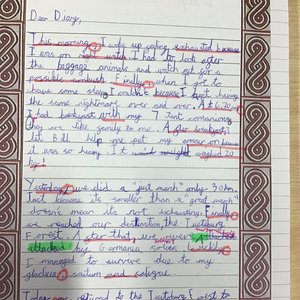 Dear Diary,
This morning I woke up feeling exhausted because
I was on night watch. I had to look after
the baggage animals and watch out for a
possible ambush. Finally when I got to
have some sleep I couldn't because I kept having
the same nightmare over and over. At 6:30,
I had breakfast with my 7 tent companions
they are like family to me. After breakfast
I it was so heavy! It weighed 20
kg!
Yesterday, we did a "just march" only 30km.
Just because its smaller than a "great march"
doesn't mean its not exhausting. Finally
we reached our destination, the Tuitoburg
Forest. After that, we were
attacked by Germania Soldier. Luckily
I managed to survive due to my
glorious scutum and caligae.
Today we returned to the Tuitoburg Forest to